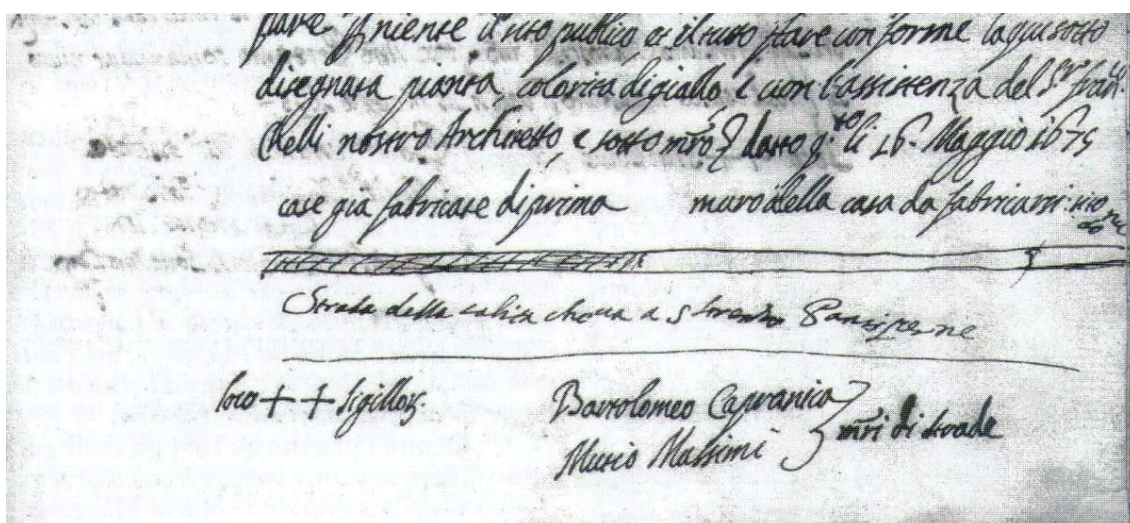 fare p niente il sito publico et il tutto fare conforme la qui sotto
disegnata pianta, colorita di giallo e con l'assistenza del Sr. Fran.co
Delli nostro Architetto, e sotto mro datto q.to li 16. Maggio 1675
case già fabricate di prima muro della casa da fabricarsi
Strada della salita che va a S Lorenzo Panisperne
loco + + sigillor.
Bartolomeo Capranica
Mutio Massimi
mri di strade